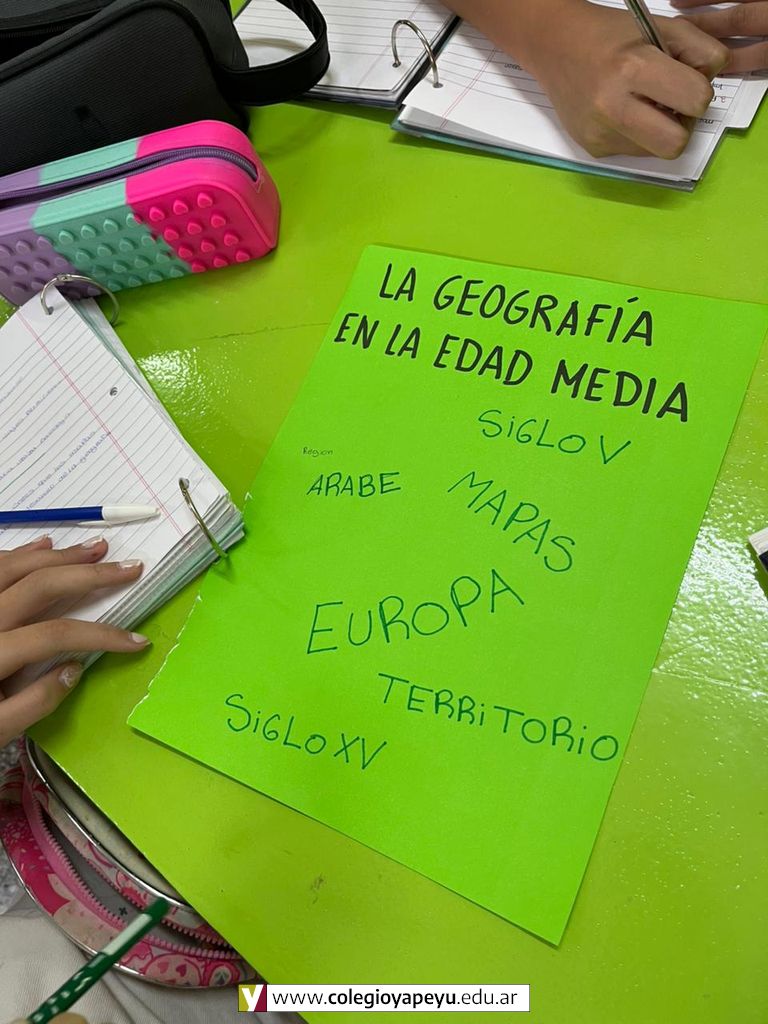 LA GEOGRAFÍA
EN LA EDAD MEDIA
SiGLO V
Región
ARABE
MAPAS
EUROPA
TERRiTORiO
SiGLO XV
www.colegioyapeyu.edu.ar